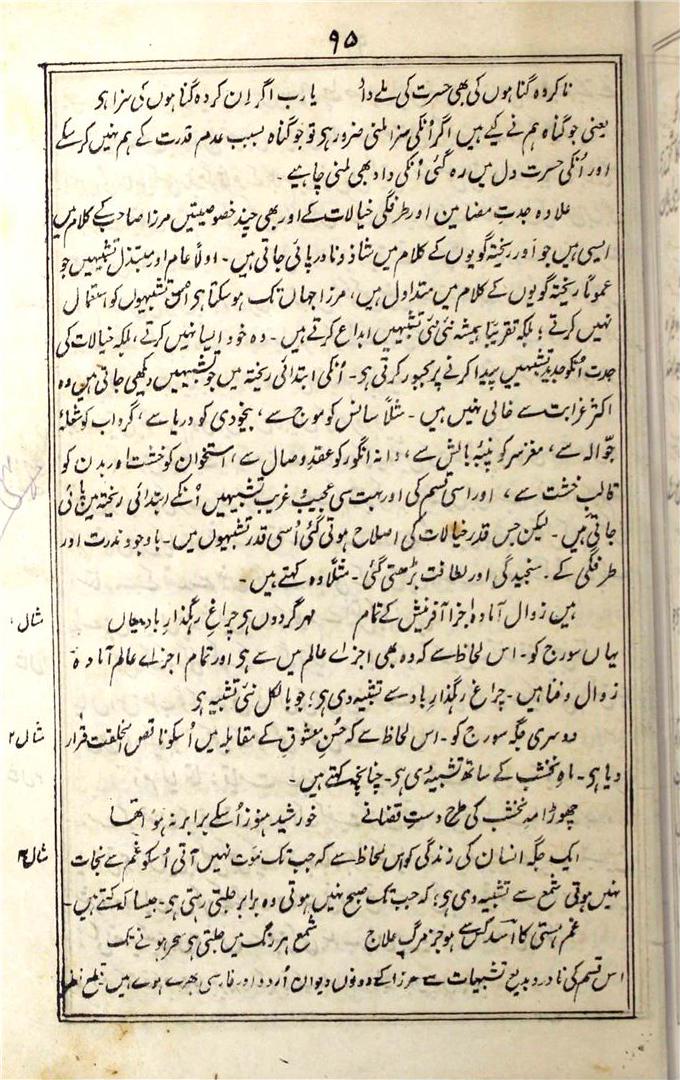 ۹۵
ناکردہ گناہوں کی بھی حسرت کی ملے داد یا رب اگر ان کردہ گناہوں کی سزا ہی
یعنی جو گناہ ہم نے کیے ہیں اگر اُنکی سزا ملنی ضرور ہی تو جو گناہ بسبب عدم قدرت کے ہم نہیں کر سکے
اور اُنکی حسرت دل میں رہ گئی اُنکی داد بھی ملنی چاہیے ۔
علاوہ جدتِ مضامین اور طرفگی خیالات کے اور بھی چند خصوصیتیں مرزا صاحب کے کلام میں
ایسی ہیں جو اَور ریختہ گویوں کے کلام میں شاذ و نادر پائی جاتی ہیں ۔ اولاً عام اور مبتذل تشبیہیں جو
عموماً ریختہ گویوں کے کلام میں متداول ہیں، مرزا جہاں تک ہو سکتا ہی اُن تشبیہوں کو استعمال
نہیں کرتے ؛ بلکہ تقریباً ہمیشہ نئی نئی تشبیہیں ابداع کرتے ہیں ۔ وہ خود ایسا نہیں کرتے، بلکہ خیالات کی
جدت اُنکو جدید تشبیہیں پیدا کرنے پر مجبور کرتی ہی ۔ اُنکی ابتدائی ریختہ میں جو تشبیہیں دیکھی جاتی ہیں وہ
اکثر غرابت سے خالی نہیں ہیں ۔ مثلاً سانس کو موج سے ، بیخودی کو دریا سے ، گرداب کو شعلۂ
جوّالہ سے ، مغزِ سر کو پنبۂ بالش سے ، دانۂ انگور کو عقدِ وصال سے ، استخوان کو خشت اور بدن کو
قالبِ خشت سے ، اور اسی قسم کی اور بہت سی عجیب و غریب تشبیہیں اُنکے ابتدائی ریختہ میں پائی
جاتی ہیں ۔ لیکن جس قدر خیالات کی اصلاح ہوتی گئی اُسی قدر تشبیہوں میں ۔ باوجود ندرت اور
طرفگی کے ۔ سنجیدگی اور لطافت بڑھتی گئی ۔ مثلاً وہ کہتے ہیں ۔
مثال ۱
ہیں زوال آمادہ اجزا آفرینش کے تمام مہر گردوں ہی چراغِ رہگذارِ باد یہاں
یہاں سورج کو ۔ اس لحاظ سے کہ وہ بھی اجزاے عالم میں سے ہی اور تمام اجزاے عالم آمادہ
زوال و فنا ہیں ۔ چراغِ رہگذارِ باد سے تشبیہ دی ہی ؛ جو بالکل نئی تشبیہ ہی
مثال ۲
دوسری جگہ سورج کو ۔ اس لحاظ سے کہ حُسنِ معشوق کے مقابلہ میں اُسکو ناقص الخلقت قرار
دیا ہی ۔ ماہِ نخشب کے ساتھ تشبیہ دی ہی ۔ چنانچہ کہتے ہیں ۔
چھوڑا مہِ نخشب کی طرح دستِ قضا نے خورشید ہنوز اُسکے برابر نہ ہوا تھا
مثال ۳
ایک جگہ انسان کی زندگی کو اس لحاظ سے کہ جب تک موت نہیں آتی اُسکو غم سے نجات
نہیں ہوتی شمع سے تشبیہ دی ہی ؛ کہ جب تک صبح نہیں ہوتی وہ برابر جلتی رہتی ہی ۔ جیسا کہ کہتے ہیں ۔
غم ہستی کا اسد کس سے ہو جز مرگ علاج شمع ہر رنگ میں جلتی ہی سحر ہونے تک
اس قسم کی نادر و بدیع تشبیہات سے مرزا کے دونوں دیوان اُردو اور فارسی بھرے ہوے ہیں